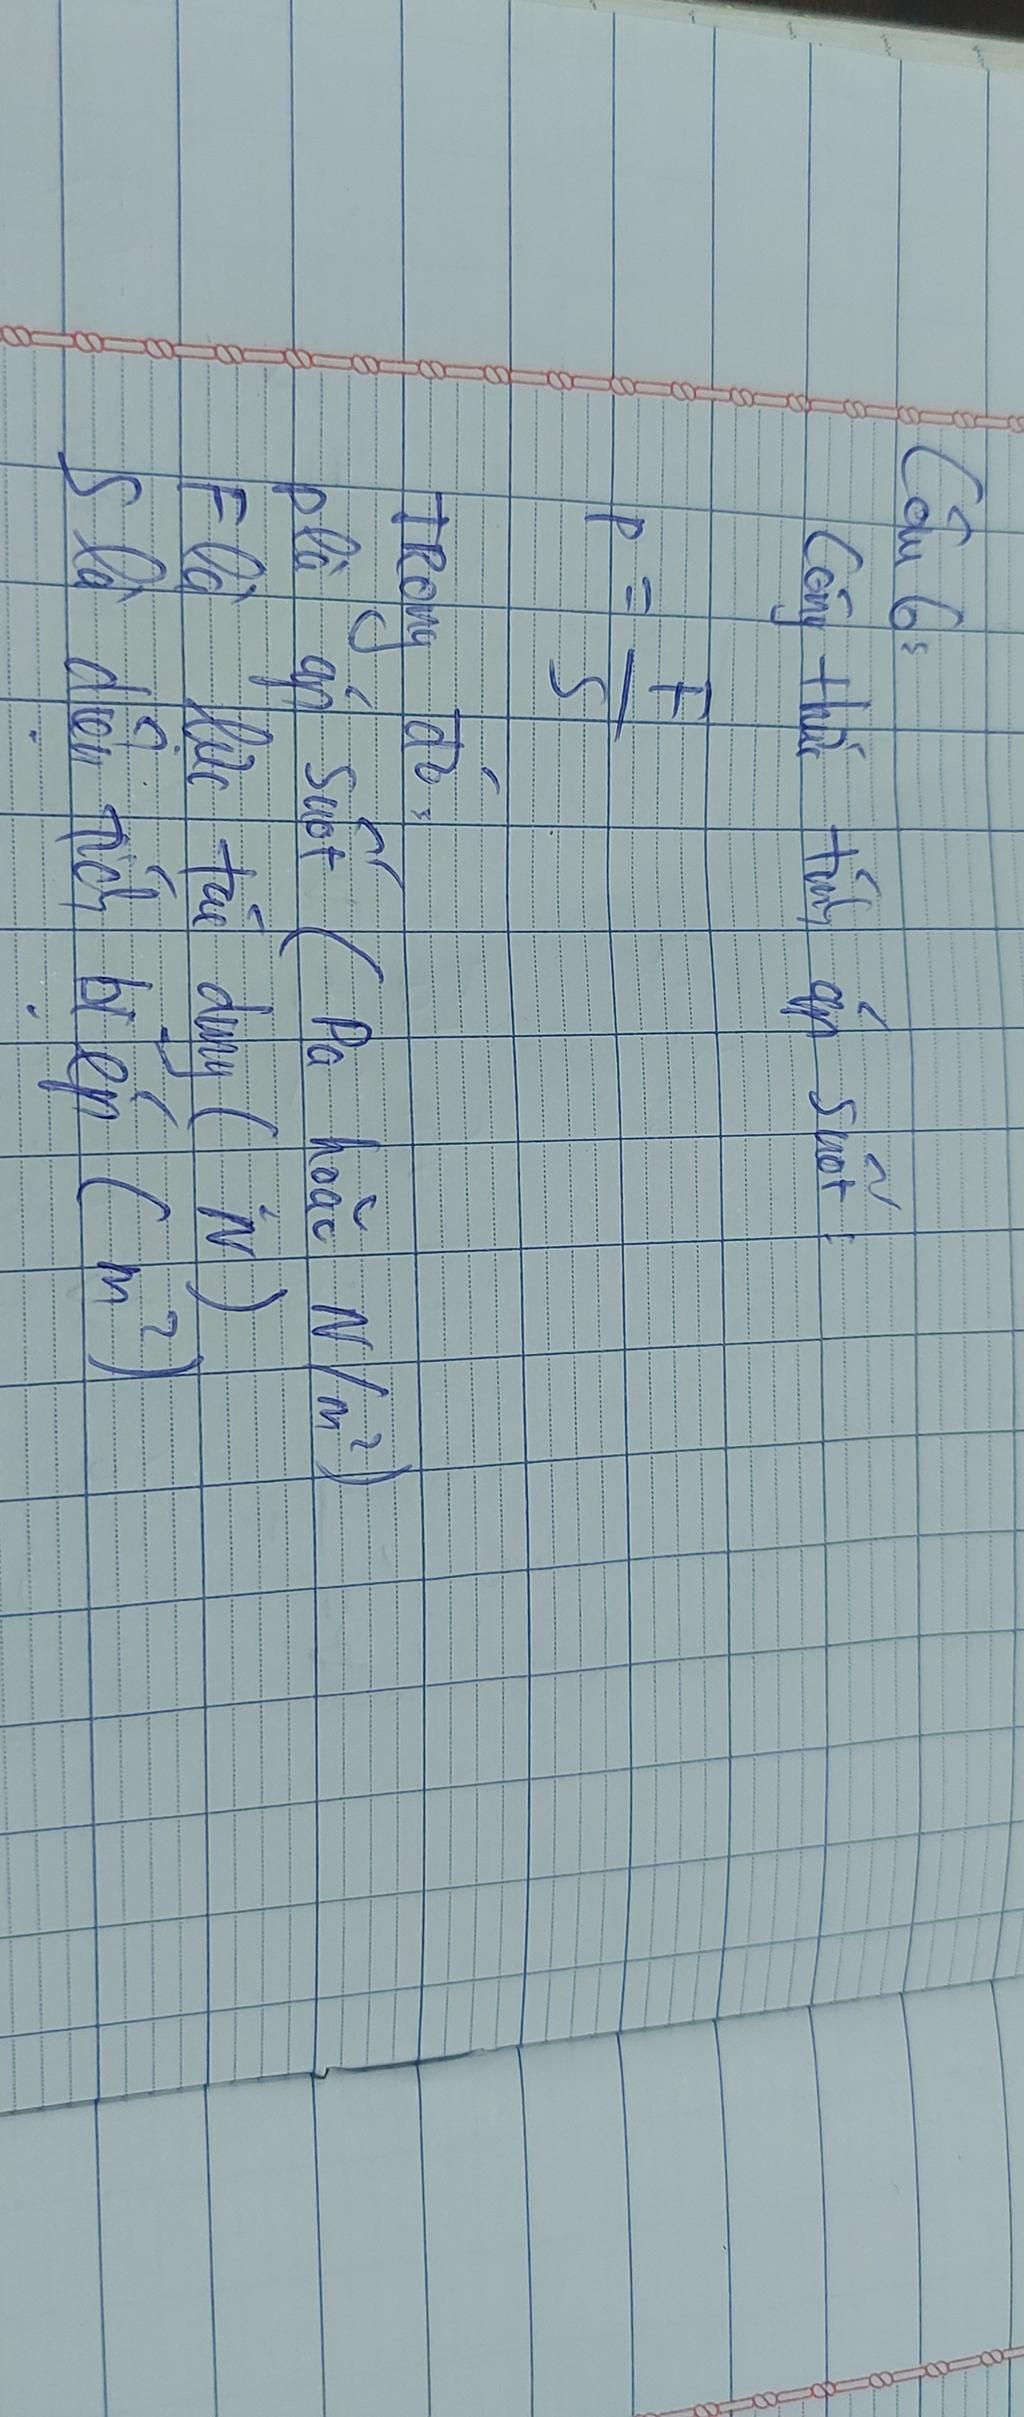 Câu 6:
Công thức tính áp suất:
P = F/S
Trong đó:
p là áp suất (Pa hoặc N/m²)
F là lực tác dụng (N)
S là diện tích bị ép (m²)